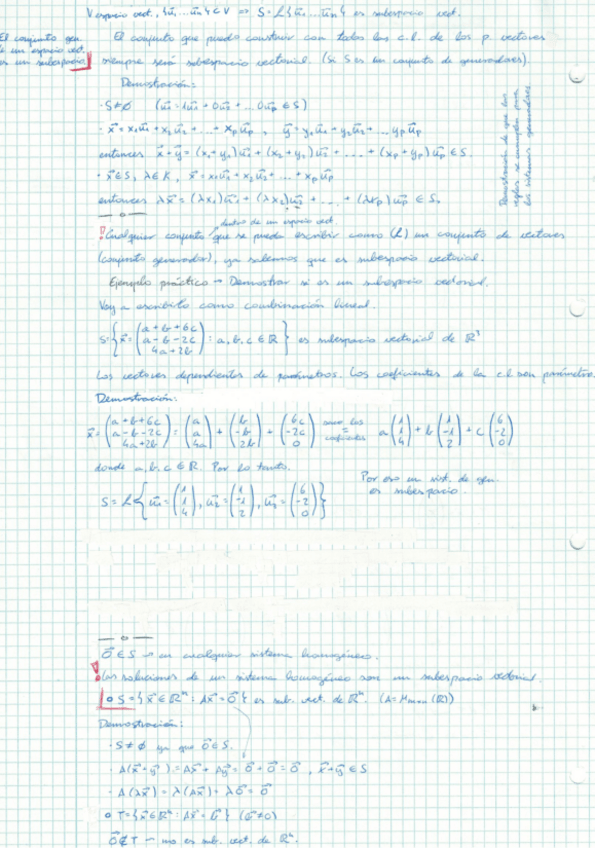 V espacio vect., {u⃗₁...u⃗ₚ} ⊂ V ⇒ S = L{u⃗₁...u⃗ₚ} es subespacio vect.
El conjunto gen. de un espacio vect. es un subespacio
El conjunto que puedo construir con todas las c.l. de los p. vectores
siempre será subespacio vectorial. (si S es un conjunto de generadores).
Demostración:
· S ≠ ∅ (u⃗₁ = 1u⃗₁ + 0u⃗₂ + ... 0u⃗ₚ ∈ S)
· x⃗ = x₁u⃗₁ + x₂u⃗₂ + ... + xₚu⃗ₚ , y⃗ = y₁u⃗₁ + y₂u⃗₂ + ... yₚu⃗ₚ
entonces x⃗ + y⃗ = (x₁+y₁)u⃗₁ + (x₂+y₂)u⃗₂ + ... + (xₚ+yₚ)u⃗ₚ ∈ S.
· x⃗ ∈ S, λ ∈ K, x⃗ = x₁u⃗₁ + x₂u⃗₂ + ... + xₚu⃗ₚ
entonces λx⃗ = (λx₁)u⃗₁ + (λx₂)u⃗₂ + ... + (λxₚ)u⃗ₚ ∈ S.
Demostración de que las
reglas se cumplen para
los sistemas generadores
dentro de un espacio vect.
! Cualquier conjunto que se pueda escribir como (L) un conjunto de vectores
(conjunto generador), ya sabemos que es subespacio vectorial.
Ejemplo práctico → Demostrar si es un subespacio vectorial.
Voy a escribirlo como combinación lineal.
S = { x⃗ = (a+b+6c, a-b-2c, 4a+2b) : a, b, c ∈ R } es subespacio vectorial de R³
Los vectores dependientes de parámetros. Los coeficientes de la c.l son parámetros.
Demostración:
x⃗ = (a+b+6c, a-b-2c, 4a+2b) = (a, a, 4a) + (b, -b, 2b) + (6c, -2c, 0) sacar los coeficientes = a(1, 1, 4) + b(1, -1, 2) + c(6, -2, 0)
donde a, b, c ∈ R. Por lo tanto.
S = L{ u⃗₁ = (1, 1, 4), u⃗₂ = (1, -1, 2), u⃗₃ = (6, -2, 0) }
Por eso un sist. de gen.
es subespacio.
0⃗ ∈ S → en cualquier sistema homogéneo.
! Las soluciones de un sistema homogéneo son un subespacio vectorial.
o S = {x⃗ ∈ Rⁿ : Ax⃗ = 0⃗} es sub. vect. de Rⁿ (A = Mₘₓₙ(R))
Demostración:
· S ≠ ∅ ya que 0⃗ ∈ S.
· A(x⃗+y⃗) = Ax⃗ + Ay⃗ = 0⃗ + 0⃗ = 0⃗ , x⃗+y⃗ ∈ S
· A(λx⃗) = λ(Ax⃗) = λ0⃗ = 0⃗
o T = {x⃗ ∈ Rⁿ : Ax⃗ = b⃗} (b⃗ ≠ 0)
0⃗ ∉ T → no es sub. vect. de Rⁿ.